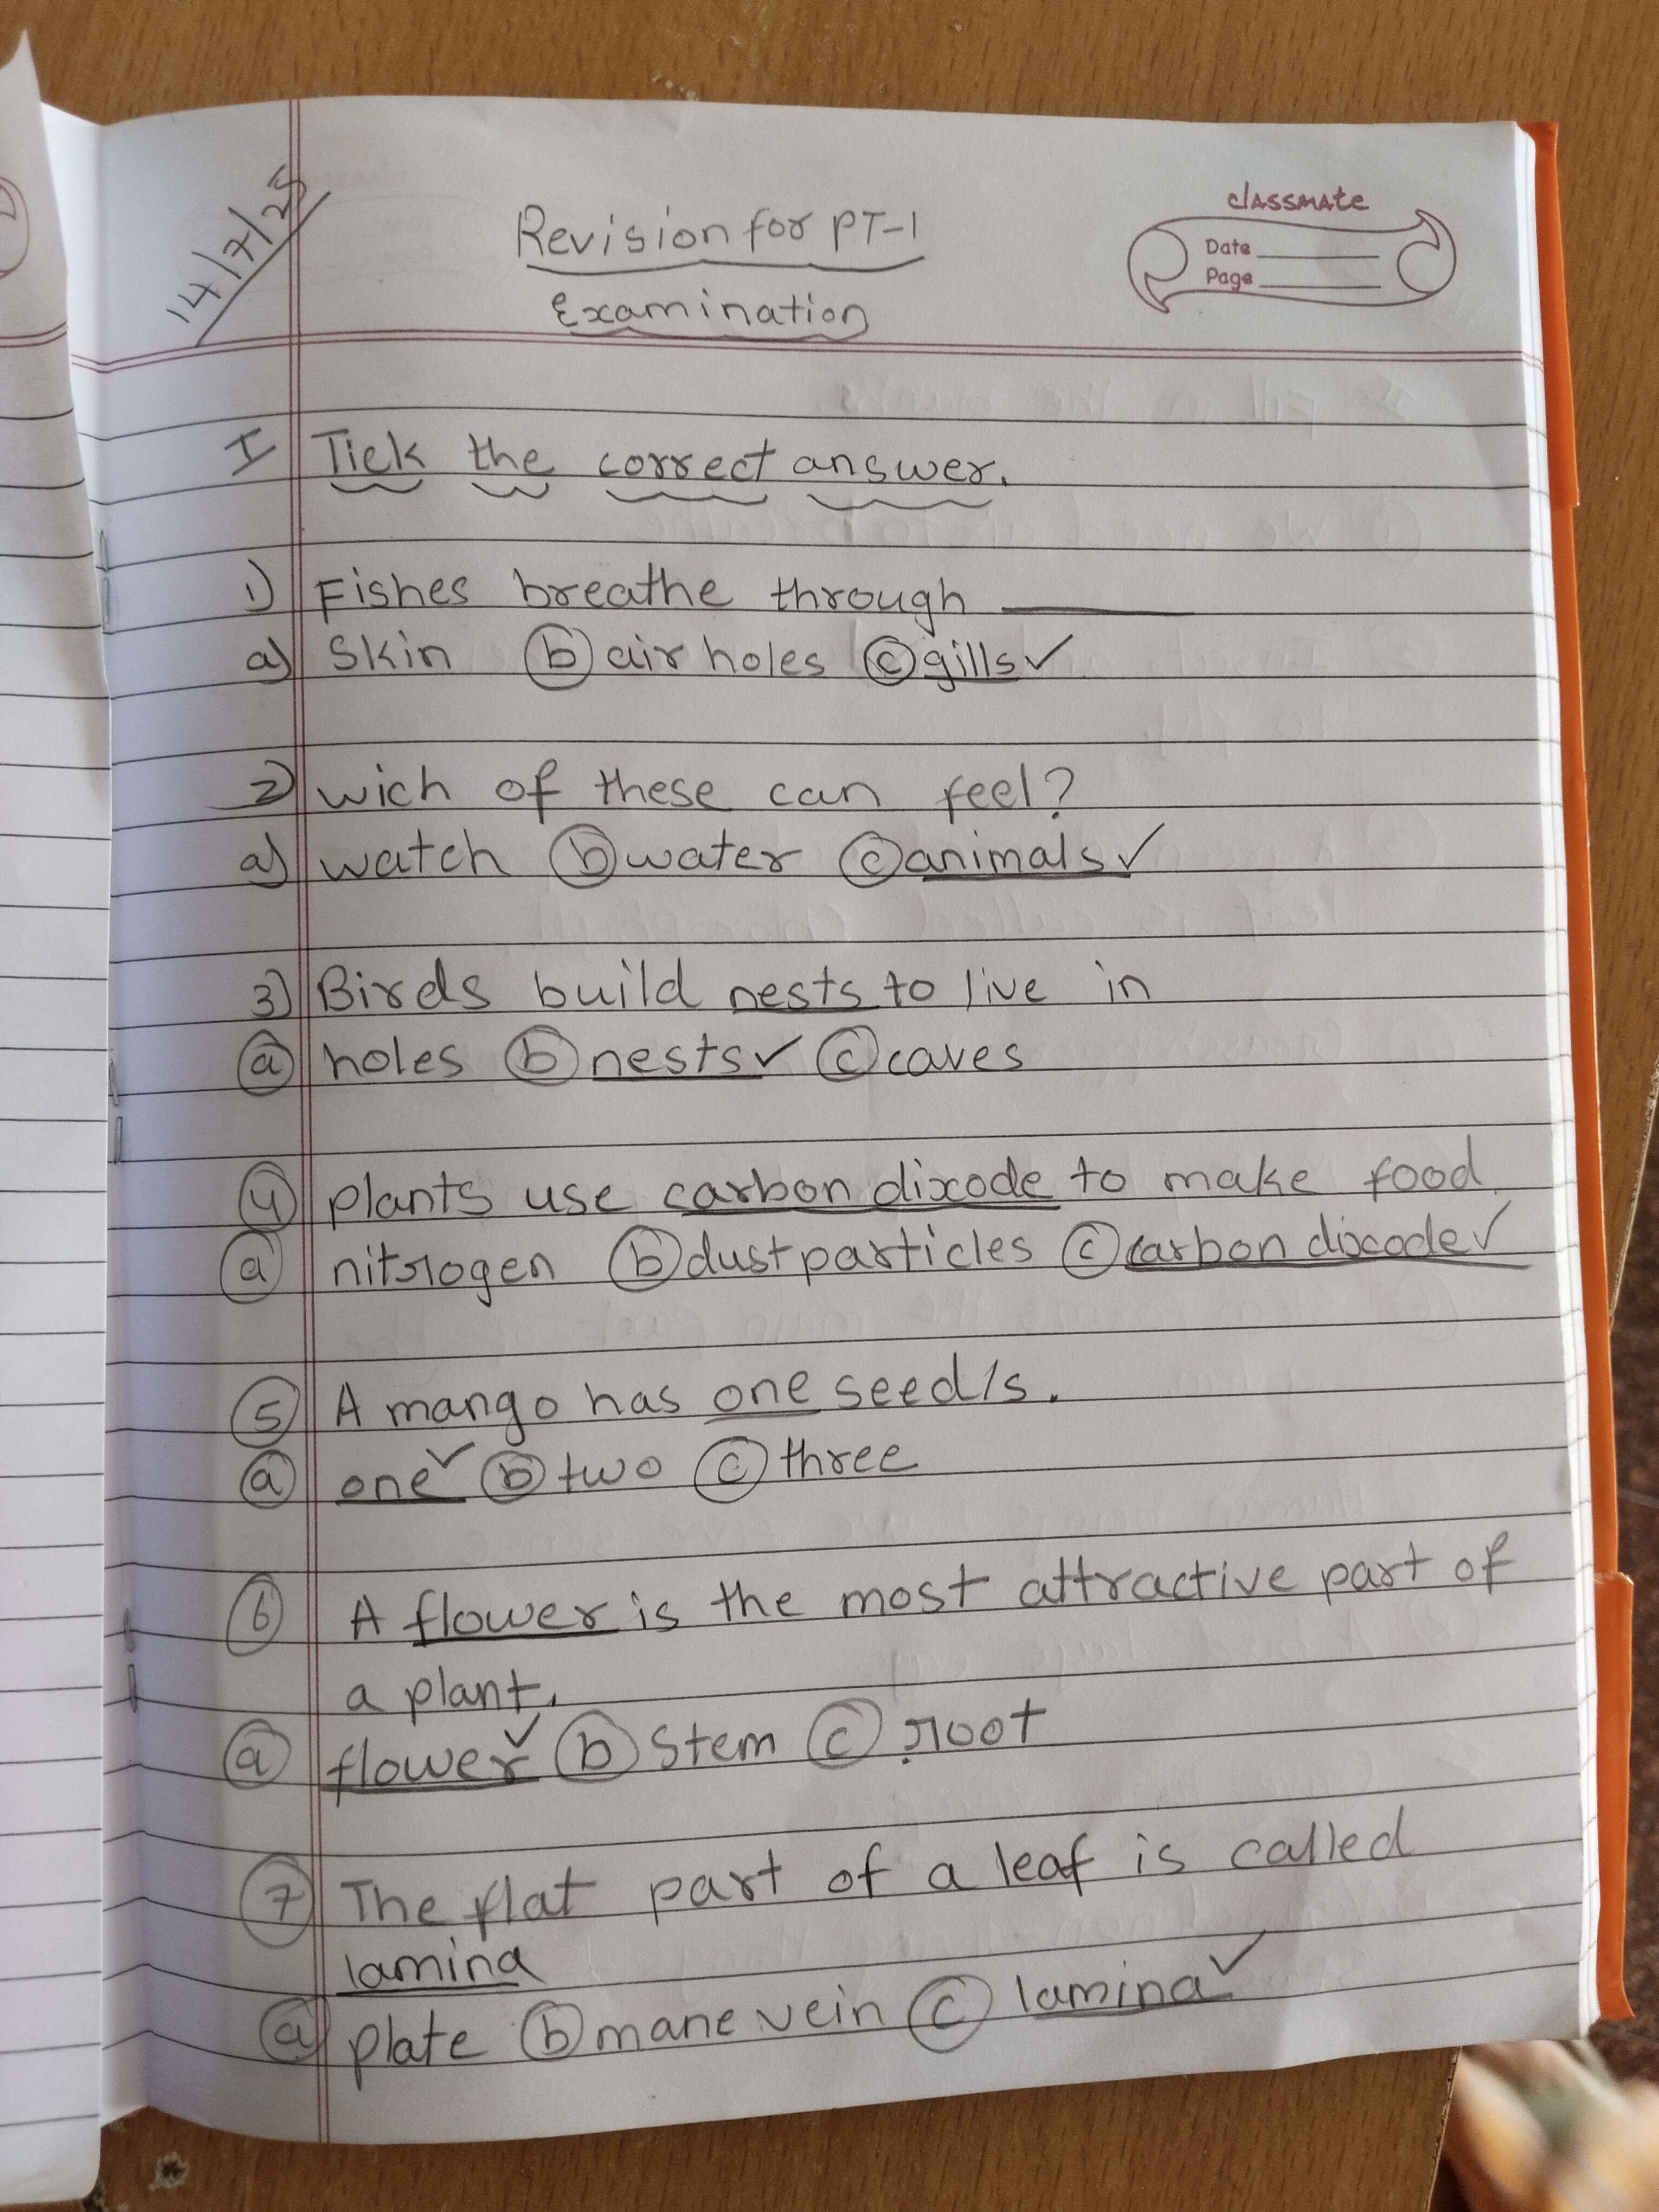 14/7/25
Revision for PT-1
Examination
classmate
Date
Page
I Tick the correct answer.
1) Fishes breathe through ______
a) Skin b) air holes c) gills ✓
2) wich of these can feel?
a) watch b) water c) animals ✓
3) Birds build nests to live in
a) holes b) nests ✓ c) caves
4) plants use carbon dixode to make food
a) nitrogen b) dust particles c) carbon dixode ✓
5) A mango has one seed/s.
a) one ✓ b) two c) three
6) A flower is the most attractive part of
a plant.
a) flower ✓ b) Stem c) root
7) The flat part of a leaf is called
lamina
a) plate b) mane vein c) lamina ✓